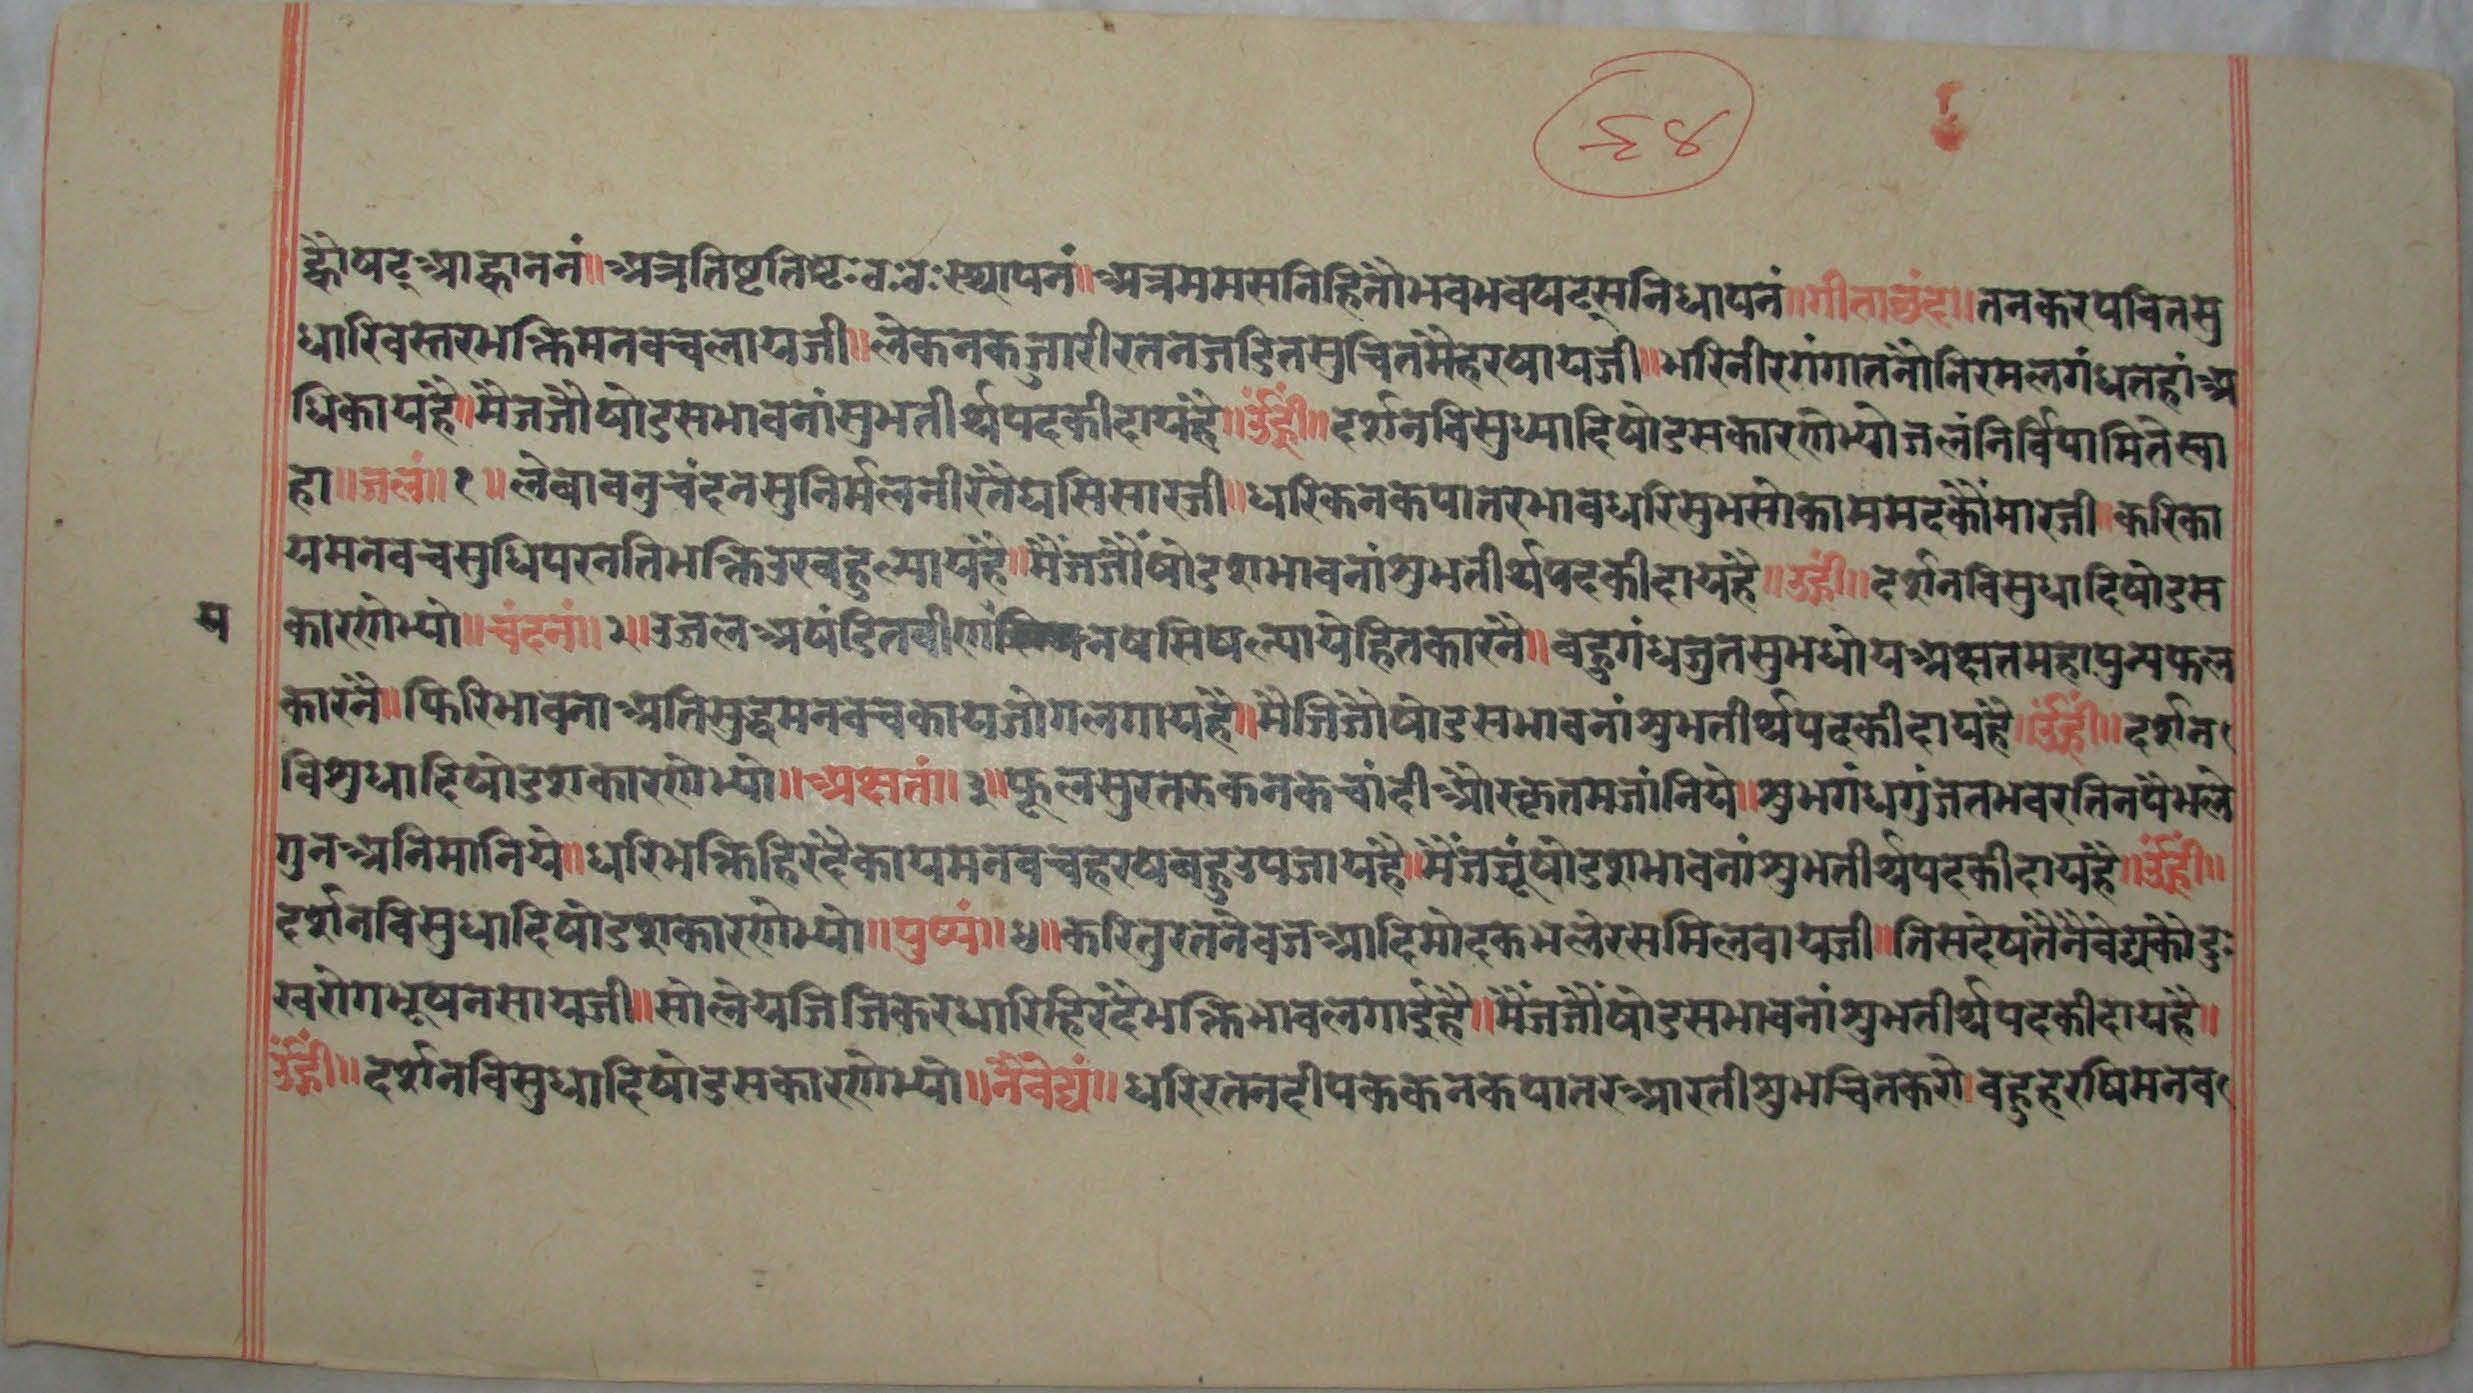 ६४
ह्वौषट् आह्वाननं॥ अत्र तिष्ट तिष्टः ठः ठः स्थापनं॥ अत्र मम सनिहितौ भव भव षट् सनिधापनं॥ गीता छंद॥ तन कर पवित सु
धारि वस्तर भक्ति मन वच लाय जी॥ ले कनक जारी रतन जडित सु चित मै हरषाय जी॥ भरि नीर गंगा तनौ निरमल गंध तहां अ
धिकाय है॥ मै जजौ षोडस भावनां सुभ तीर्थ पद की दाय है॥ उँ ह्रीं॥ दर्शनविसुध्यादिषोडसकारणेभ्यो जलं निर्विपामिते स्वा
हा॥ जलं॥ १॥ ले बावनु चंदन सु निर्मल नीर तै घसि सार जी॥ धरि कनक पातर भाव धरि सुभ सो काम मद कौं मार जी॥ करि का
य मन वच सुधि परनति भक्ति उर बहु ल्याय है॥ मैं जजौं षोडश भावनां शुभ तीर्थ पद की दाय है॥ उँ ह्रीं॥ दर्शनविसुधादिषोडस
य
कारणेभ्यो॥ चंदनं॥ २॥ उजल अषंडित वीण नष सिष ल्याये हित कारनै॥ बहु गंध जुत सुभ धोय अक्षत महा पुन्य फल
कारनै॥ फिरि भावना अति सुद्ध मन वच काय जोग लगाय है॥ मै जजौ षोडस भावनां शुभ तीर्थ पद की दाय है॥ उँ ह्रीं॥ दर्शन
विशुधादिषोडशकारणेभ्यो॥ अक्षतां॥ ३॥ फूल सुरतरु कनक चांदी और कृतम जांनिये॥ शुभ गंध गुंजत भवर तिन पै भले
गुन अनिमानिये॥ धरि भक्ति हिरदै काय मन वच हरष बहु उपजाय है॥ मैं जजूं षोडश भावनां शुभ तीर्थ पद की दाय है॥ उँ ह्रीं॥
दर्शनविसुधादिषोडशकारणेभ्यो॥ पुष्पं॥ ४॥ करि तुरत नेवज आदि मोदक भले रस मिलवाय जी॥ तिस देषतै नैवेद्य कौ दुः
ख रोग भूषन साय जी॥ सो लेय जजि कर धारि हिरदै भक्ति भाव लगाई है॥ मैं जजौं षोडस भावनां शुभ तीर्थ पद की दाय है॥
उँ ह्रीं॥ दर्शनविसुधादिषोडसकारणेभ्यो॥ नैवेद्यं॥ धरि रतन दीपक कनक पातर आरती शुभ चित करो। बहु हरषि मन व